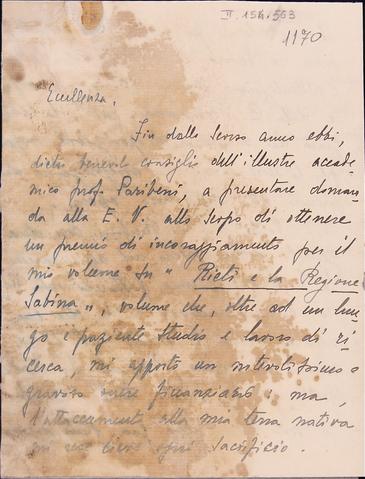 II. 15A. 563
1170
Eccellenza,
Fin dallo scorso anno ebbi,
dietro benevolo consiglio dell'illustre accade-
mico prof. Paribeni, a presentare doman-
da alla E. V. allo scopo di ottenere
un premio di incoraggiamento per il
mio volume su " Rieti e la Regione
Sabina ", volume che, oltre ad un lun-
go e paziente studio e lavoro di ri-
cerca, mi apportò un notevolissimo e
gravoso onere finanziario: ma,
l'attaccamento alla mia terra nativa
sacrificio.